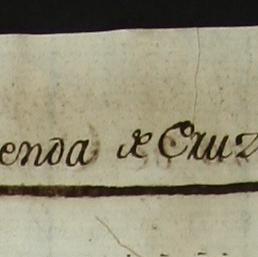 enda de Cruz